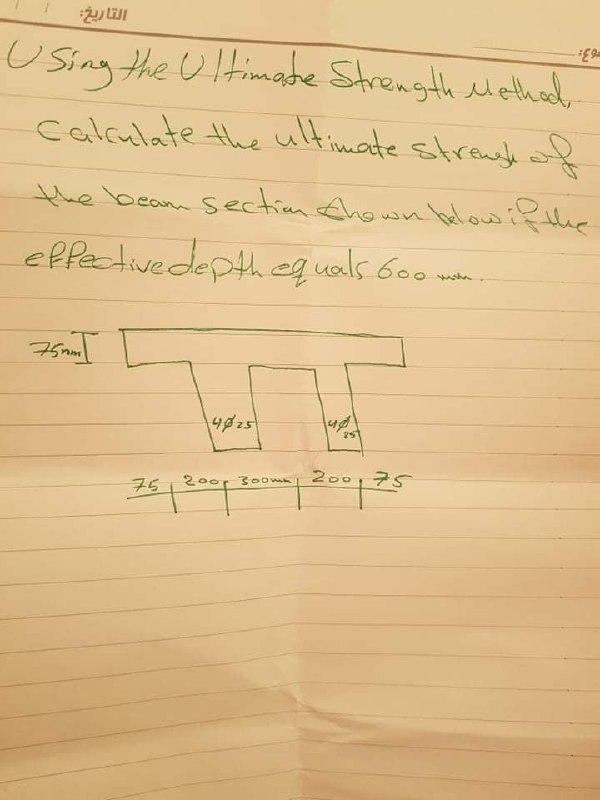 التاريخ:
Using the Ultimate Strength Method,
Calculate the ultimate strengh of
the beam section shown below if the
effective depth equals 600 mm.
75mm
4Ø25 4Ø25
75 200 300mm 200 75